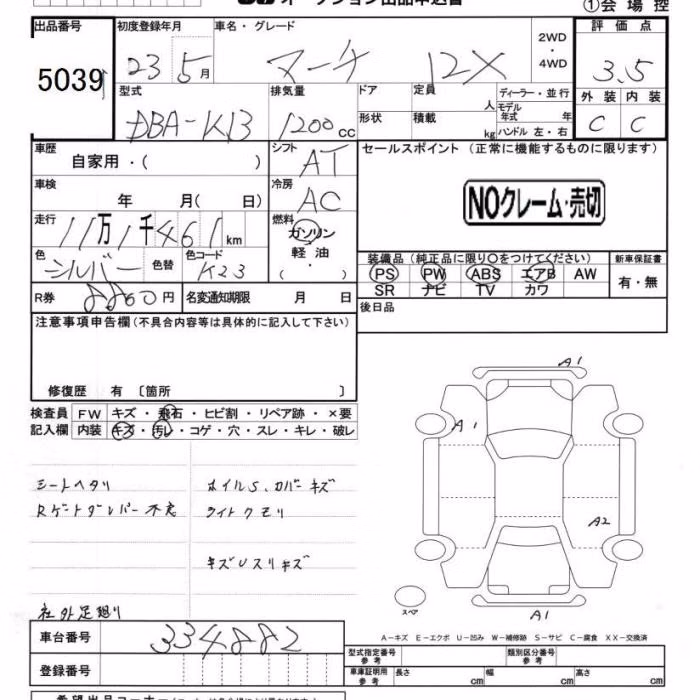 オークション出品申込書
①会場控
出品番号 初度登録年月 車名・グレード 評価点
5039 23 5月 マーチ 12X 2WD・4WD 3.5
型式 排気量 ドア 定員 人 ディーラー・並行 外装 内装
DBA-K13 1200cc 形状 積載 kg モデル年式 年 ハンドル 左・右 C C
車歴 自家用・( ) シフト AT セールスポイント (正常に機能するものに限ります)
車検 年 月( 日) 冷房 AC
NOクレーム・売切
走行 11万1千461km 燃料 ガソリン 軽油・( )
色 シルバー 色替 色コード K23
装備品(純正品に限り○をつけてください) 新車保証書
PS PW ABS エアB AW 有・無
SR ナビ TV カワ
R券 8860円 名変通知期限 月 日 後日品
注意事項申告欄(不具合内容等は具体的に記入して下さい)
修復歴 有 〔箇所 〕
検査員 FW キズ・飛石・ヒビ割・リペア跡・×要
記入欄 内装 キズ・汚レ・コゲ・穴・スレ・キレ・破レ
A1
A1
シートヘタリ ホイルS、カバーキズ
Rゲートダンパー不良 ライトクモリ
A2
キズUスリキズ
スペア
A1
社外足廻り
A-キズ E-エクボ U-凹み W-補修跡 S-サビ C-腐食 XX-交換済
車台番号 334882
型式指定番号 参考 類別区分番号 参考
登録番号 車庫証明用 参考 長さ cm 幅 cm 高さ cm
希望出品コーナー